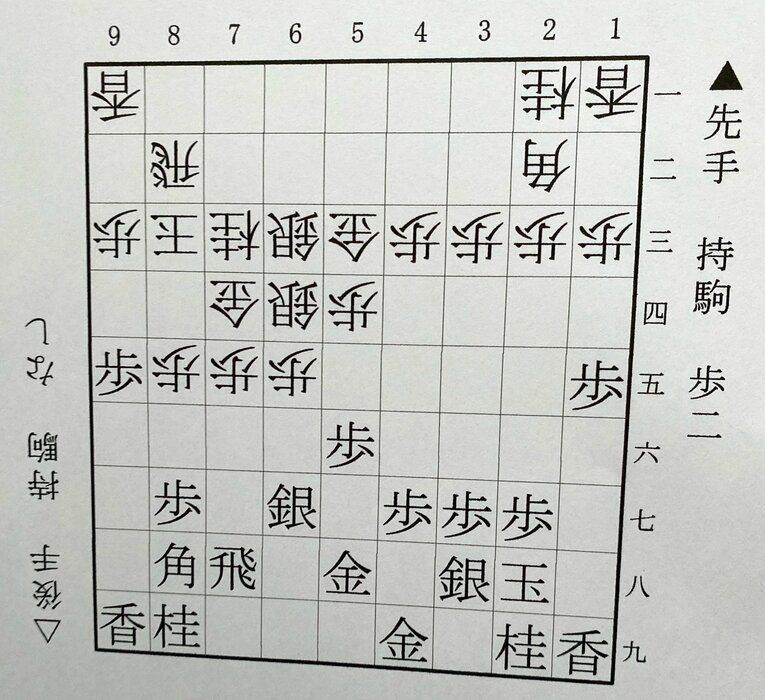 9 8 7 6 5 4 3 2 1
香 桂 香 一
飛 角 二
歩 王 桂 銀 金 歩 歩 歩 歩 三
金 銀 歩 四
歩 歩 歩 歩 歩 五
歩 六
歩 銀 歩 歩 歩 七
角 飛 金 銀 玉 八
香 桂 金 桂 香 九
▲先手 持駒 歩二
△後手 持駒 なし